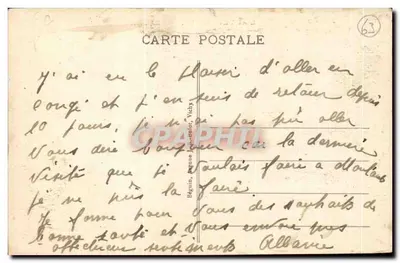 63
CARTE POSTALE
j'ai eu le plaisir d'aller en
congé et j'en suis de retour depuis
10 jours, je n'ai pas pu aller
vous dire bonjour car la dernière
visite que je voulais faire a
je ne pus la faire
Je forme pour vous des souhaits de
bonne santé et vous envoie mes
affectueux sentiments Albanie
Carte Postale
Vichy